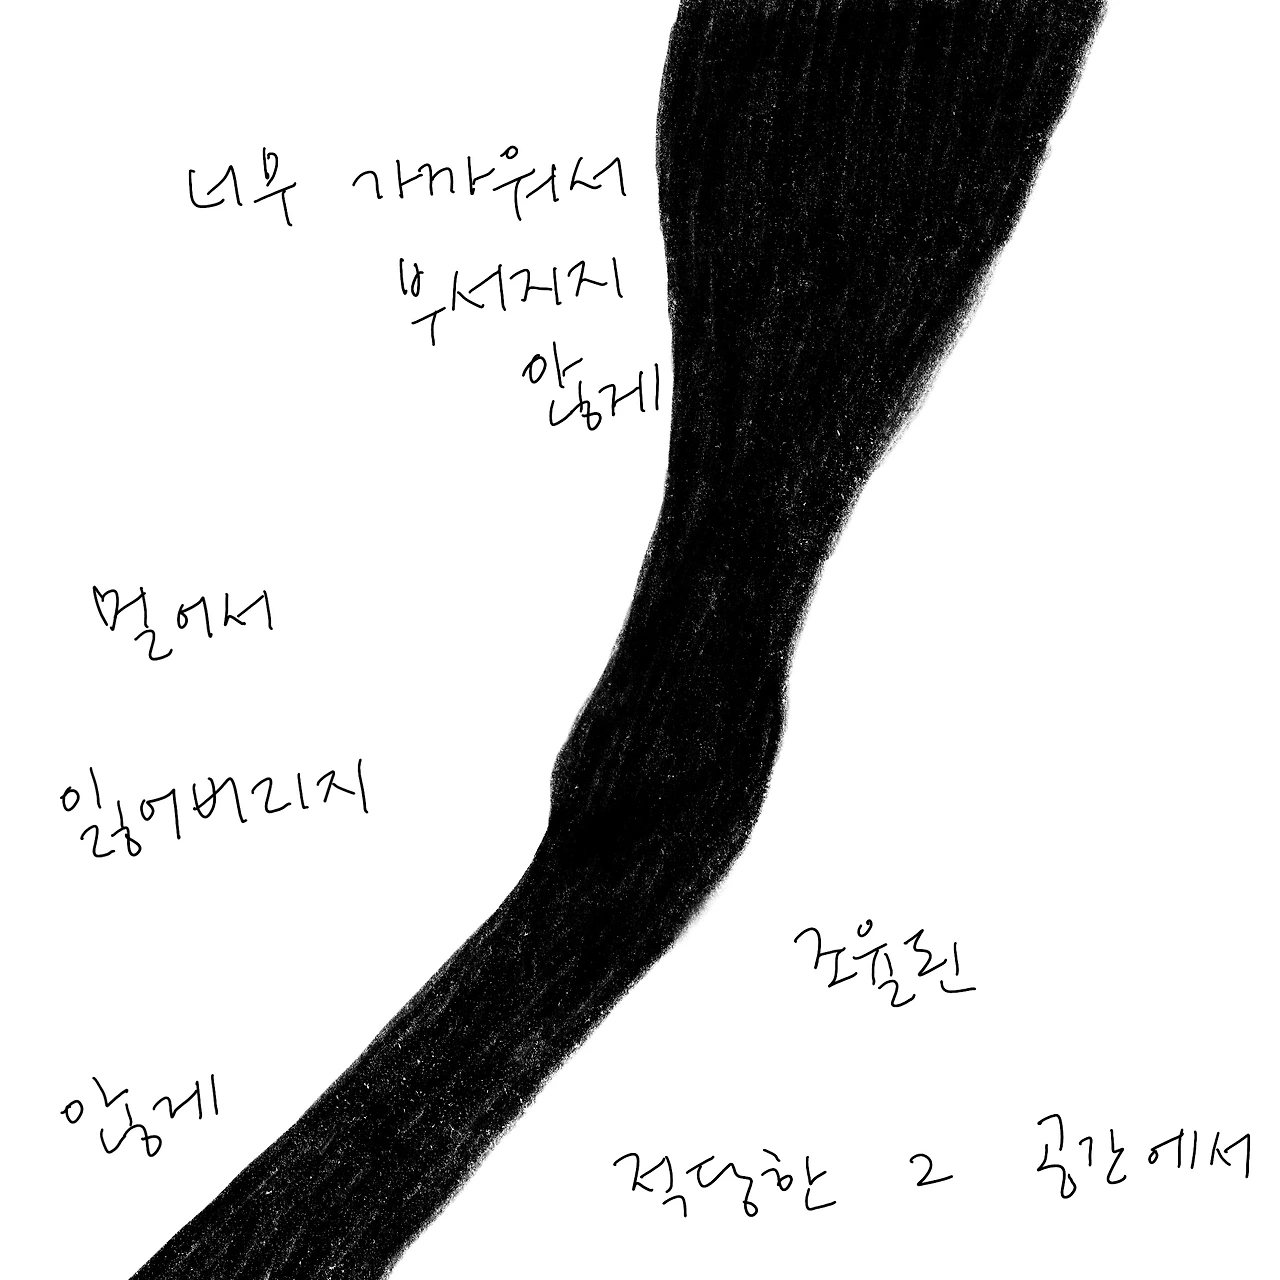 너무 가까워서
부서지지
않게
멀어서
잃어버리지
않게
조율린
적당한 그 공간에서